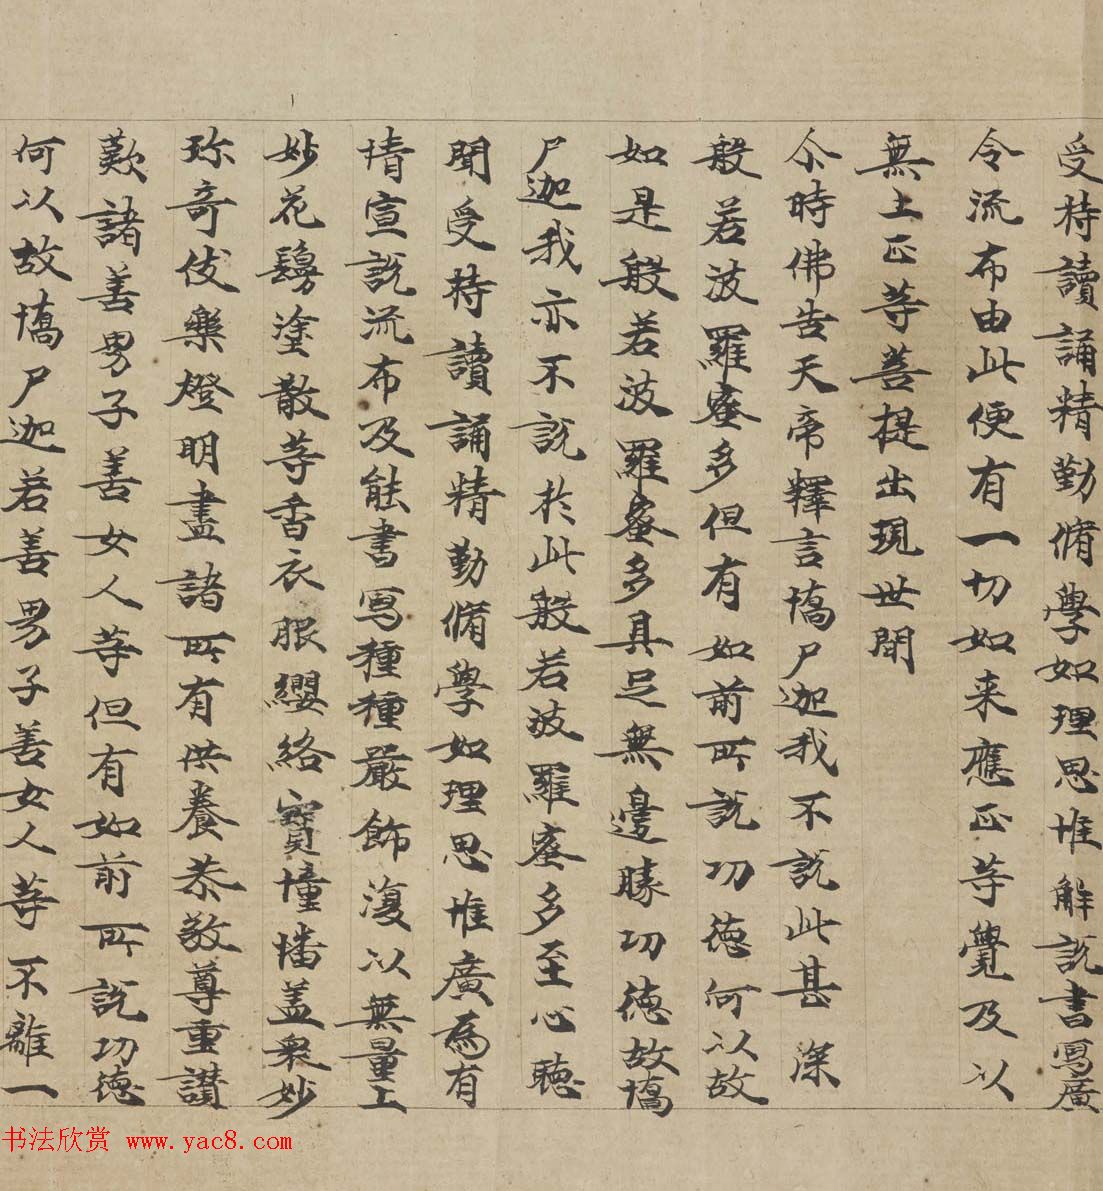 受持讀誦精勤脩學如理思惟解說書寫廣
令流布由此便有一切如来應正等覺及以
無上正等菩提出現世間
尒時佛告天帝釋言憍尸迦我不說此甚深
般若波羅蜜多但有如前所說功德何以故
如是般若波羅蜜多具足無邊勝功德故憍
尸迦我亦不說於此般若波羅蜜多至心聽
聞受持讀誦精勤脩學如理思惟廣為有
情宣說流布及能書寫種種嚴飾復以無量上
妙花鬘塗散等香衣服纓絡寶幢幡盖衆妙
珎奇伎樂燈明盡諸所有供養恭敬尊重讚
歎諸善男子善女人等但有如前所說功德
何以故憍尸迦若善男子善女人等不離一
书法欣赏 www.yac8.com